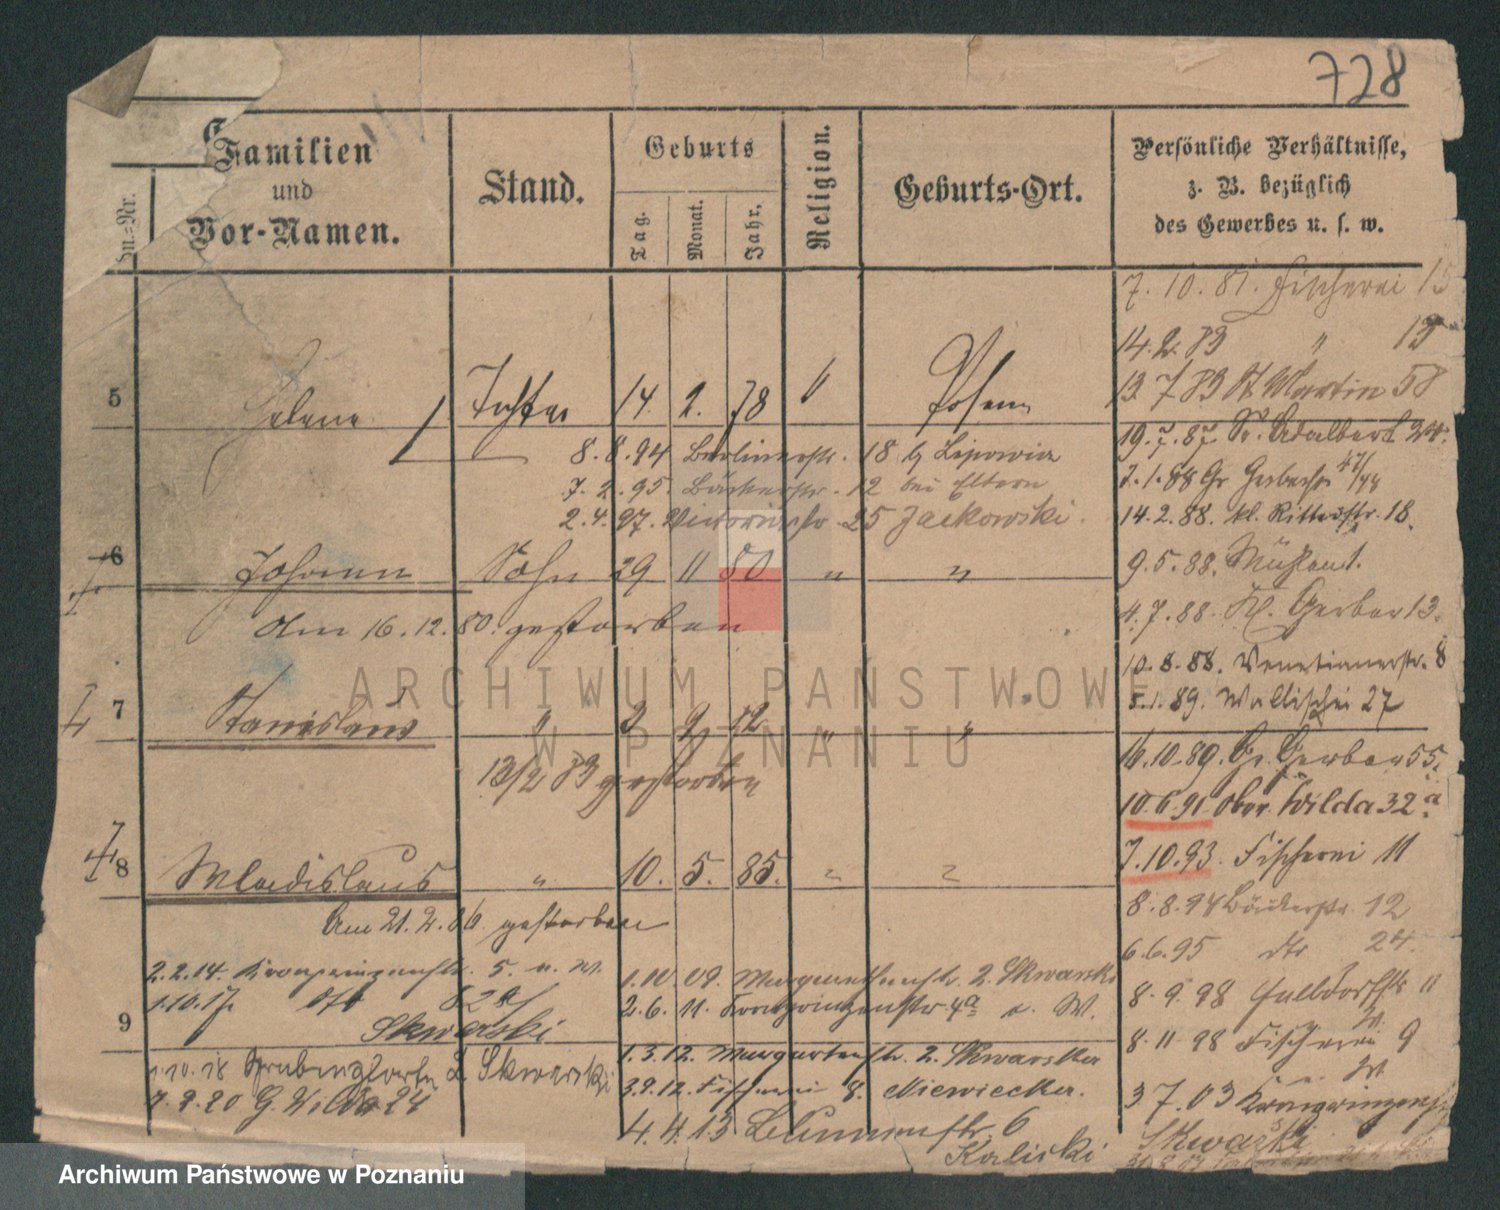 728
Familien
und
Vor-Namen.
Stand.
Geburts
Tag.
Monat.
Jahr.
Religion.
Geburts-Ort.
Persönliche Verhältnisse,
z. B. bezüglich
des Gewerbes u. s. w.
7. 10. 81. Fischerei 15
14. 2. 83 " 13
13 7 83 St Martin 58
5 Helene Tochter 14. 2. 78 " Posen
19. 7. 87. St. Adalbert 24.
8. 8. 94 Berlinerstr. 18 b/ Lipowicz
7. 2. 95. Bäckerstr. 12 bei Eltern
2. 4. 97. Victoriastr. 25 Jackowski.
7. 1. 88 Gr Gerberstr 47/48
14. 2. 88. kl. Ritterstr. 18.
6 Johann Sohn 29 11 80 " "
9. 5. 88.
am 16. 12. 80. gestorben
4. 7. 88. Kl. Gerber 13.
10. 8. 88. Venetianerstr. 8
5. 1. 89. Wallischei 27
7 Stanislaus " 3 9 82 " "
13/2 83 gestorben
16. 10. 89. Gr. Gerber 55.
10. 6. 91 Ober Wilda 32 a
7. 10. 93. Fischerei 11
8 Wladislaus " 10. 5. 85. " "
am 21. 2. 06 gestorben
8. 8. 94 Bäckerstr. 12
6. 6. 95 dto 24.
2. 2. 14. Kronprinzenstr. 5. u. W.
1. 10. 17. dto 82 a/
Skwarski
9
1. 10. 18 Z. Skwarski
7. 9. 20 G. Wilda 24
1. 10. 09. Margarethenstr. 2. Skwarski
2. 6. 11. Kronprinzenstr 4a u. W.
1. 3. 12. Margartenstr. 2. Skwarska
3. 9. 12. Fischerei 8. Niewiecka.
4. 4. 13 Blumenstr. 6
Kaliski
8. 9. 98 Halbdorfstr 11
8. 11 98 Fischerei 9
u. W
3 7. 03 Kronprinzenstr
Skwarski
ARCHIWUM PAŃSTWOWE
W POZNANIU
Archiwum Państwowe w Poznaniu